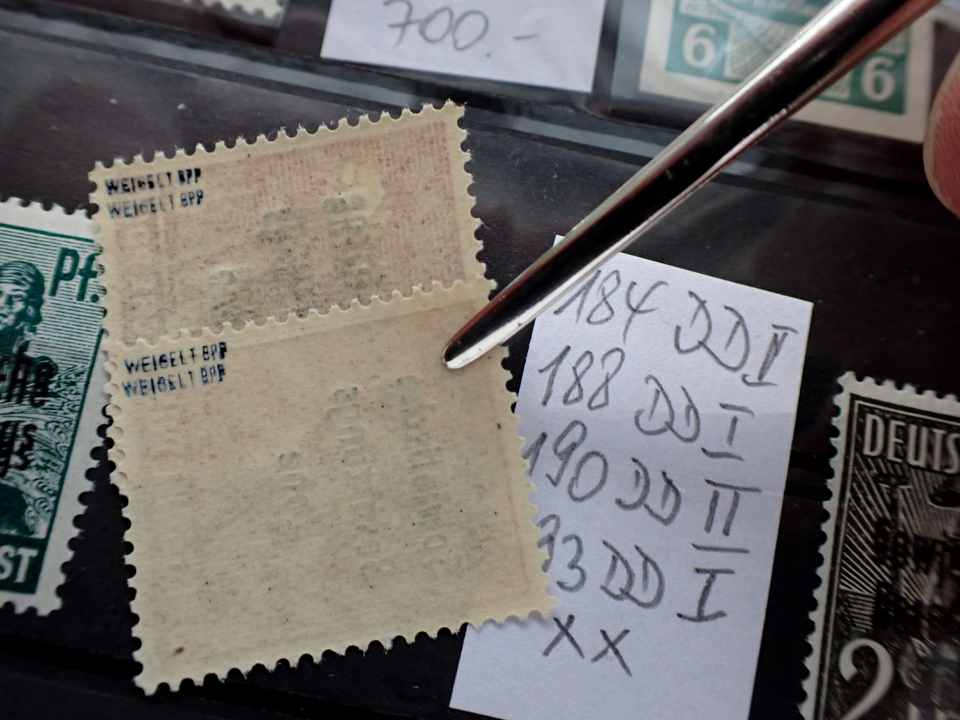 700.-
6
6
WEIGELT BPP
WEIGELT BPP
WEIGELT BPP
WEIGELT BPP
Pf.
ST
184 DD II
188 DD I
190 DD II
93 DD I
XX
DEUTS
2